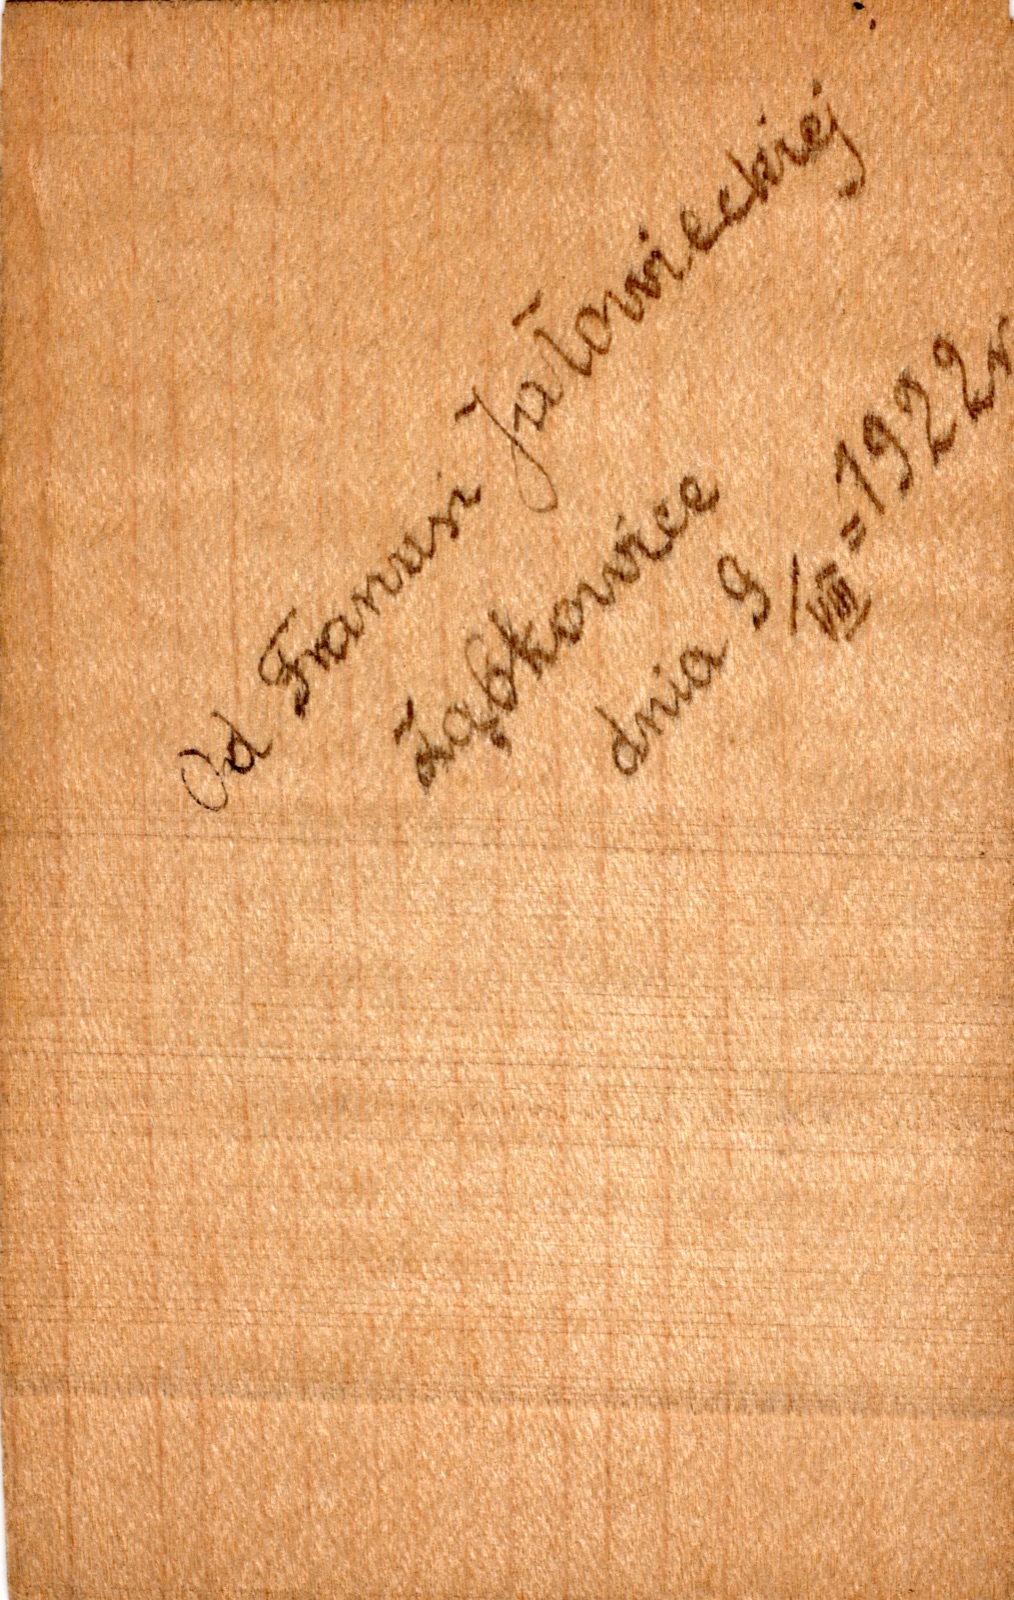 Od Franusi Jałowieckiej
Ząbkowice
dnia 9/VIII = 1922 r